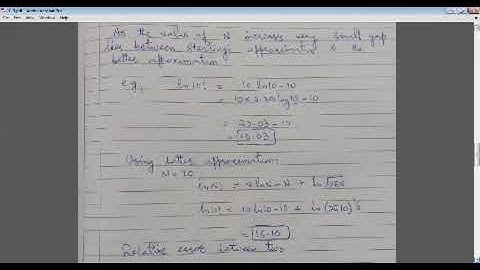 As the value of N increase very small gap
lies between Sterling's approximation & the
better approximation
e.g, ln 10! = 10 ln 10 - 10
= 10 × 2.303 log 10 - 10
= 23.03 - 10
= 13.03
Using better approximation:
N = 10
ln N! = N ln N - N + ln √2πN
ln 10! = 10 ln 10 - 10 + ln (2π10)^½
= 15.10
Relative error between two